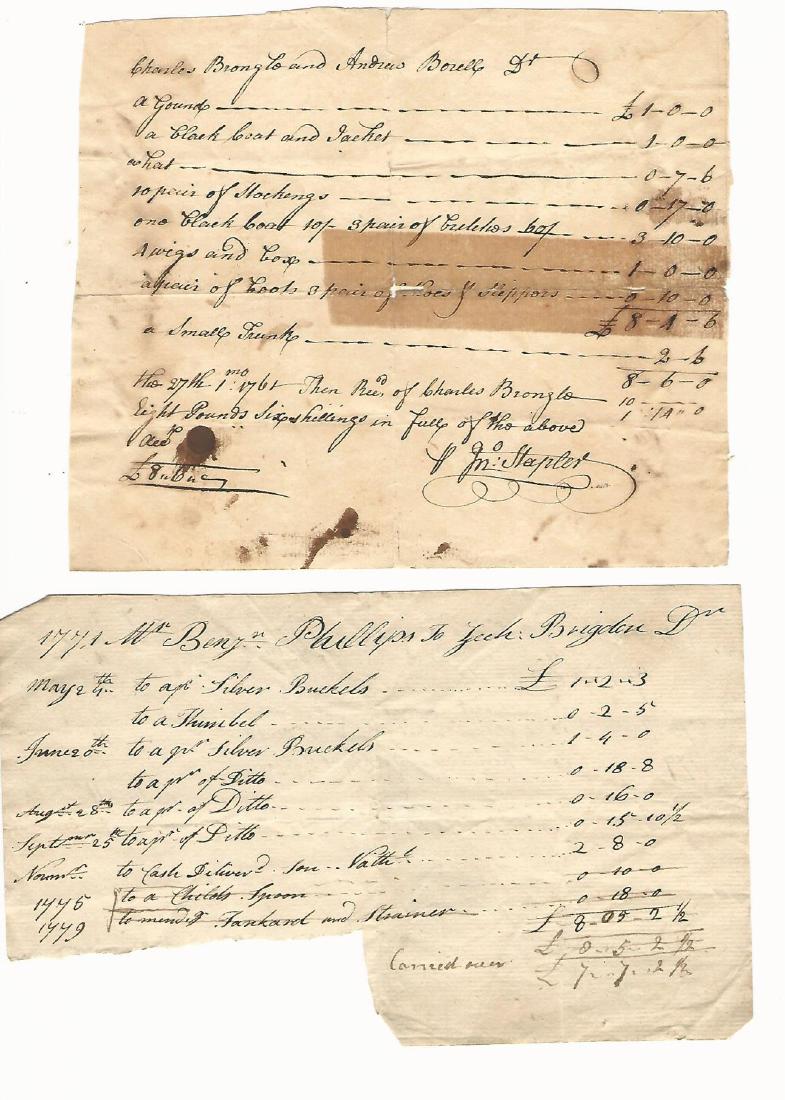 Charles Brongle and Andrew Borell Dr
a Gound £ 1-0-0
a black Coat and Jacket 1-0-0
a hat 0-7-6
10 pair of Stockengs 0-17-0
one black Coat 10/- 3 pair of britches 60/ 3-10-0
4 wigs and box 1-0-0
a pair of boots 3 pair of shoes & Sleppors 0-10-0
£ 8-4-6
a Small Trunk 2-6
8-6-0
10
the 27th 1mo: 1761 Then Recd. of Charles Brongle 1 14 0
Eight Pounds Six shillings in full of the above
Acct
£8 6
Jno: Stapler
1771 Mr Benjn. Phillips To Zech: Brigden Dr
May 2 to a pr Silver Buckels £ 1-2-3
to a Thimbel 0-2-5
June 20th to a pr Silver Buckels 1-4-0
to a pr of Ditto 0-18-8
Augst 28th to a pr of Ditto 0-16-0
Septmr 25th to a pr of Ditto 0-15-10½
Novmr to Cash Diliverd Son Nathl 2-8-0
1775 to a Childs Spoon 0-10-0
1779 to mendg Tankard and Strainer 0-18-0
£ 8-05-2½
£ 8-5-2½
Carried over £ 7-7-2½